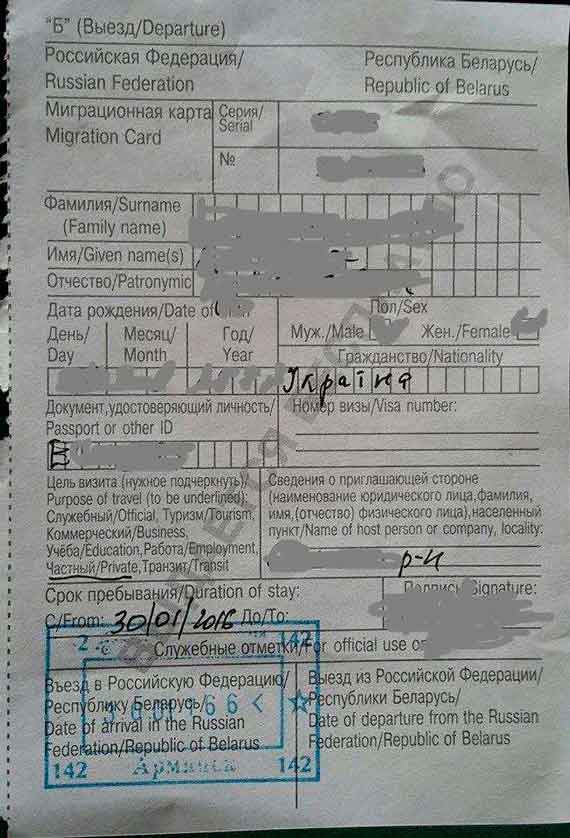 "Б" (Выезд/Departure)
Российская Федерация/
Russian Federation
Республика Беларусь/
Republic of Belarus
Миграционная карта
Migration Card
Серия/
Serial
№
Фамилия/Surname
(Family name)
Имя/Given name(s)
Отчество/Patronymic
Дата рождения/Date of
Пол/Sex
День/
Day
Месяц/
Month
Год/
Year
Муж./Male
Жен./Female
Гражданство/Nationality
Україна
Документ,удостоверяющий личность/
Passport or other ID
Номер визы/Visa number:
Цель визита (нужное подчеркнуть)/
Purpose of travel (to be underlined):
Служебный/Official, Туризм/Tourism,
Коммерческий/Business,
Учёба/Education, Работа/Employment,
Частный/Private, Транзит/Transit
Сведения о приглашающей стороне
(наименование юридического лица,фамилия,
имя,(отчество) физического лица),населенный
пункт/Name of host person or company, locality:
р-н
Срок пребывания/Duration of stay:
С/From: 30/01/2016 До/To:
Подпись/Signature:
Служебные отметки/For official use
Въезд в Российскую Федерацию/
Республику Беларусь/
Date of arrival in the Russian
Federation/Republic of Belarus
Выезд из Российской Федерации/
Республики Беларусь/
Date of departure from the Russian
Federation/Republic of Belarus
142
142 Армянск 142